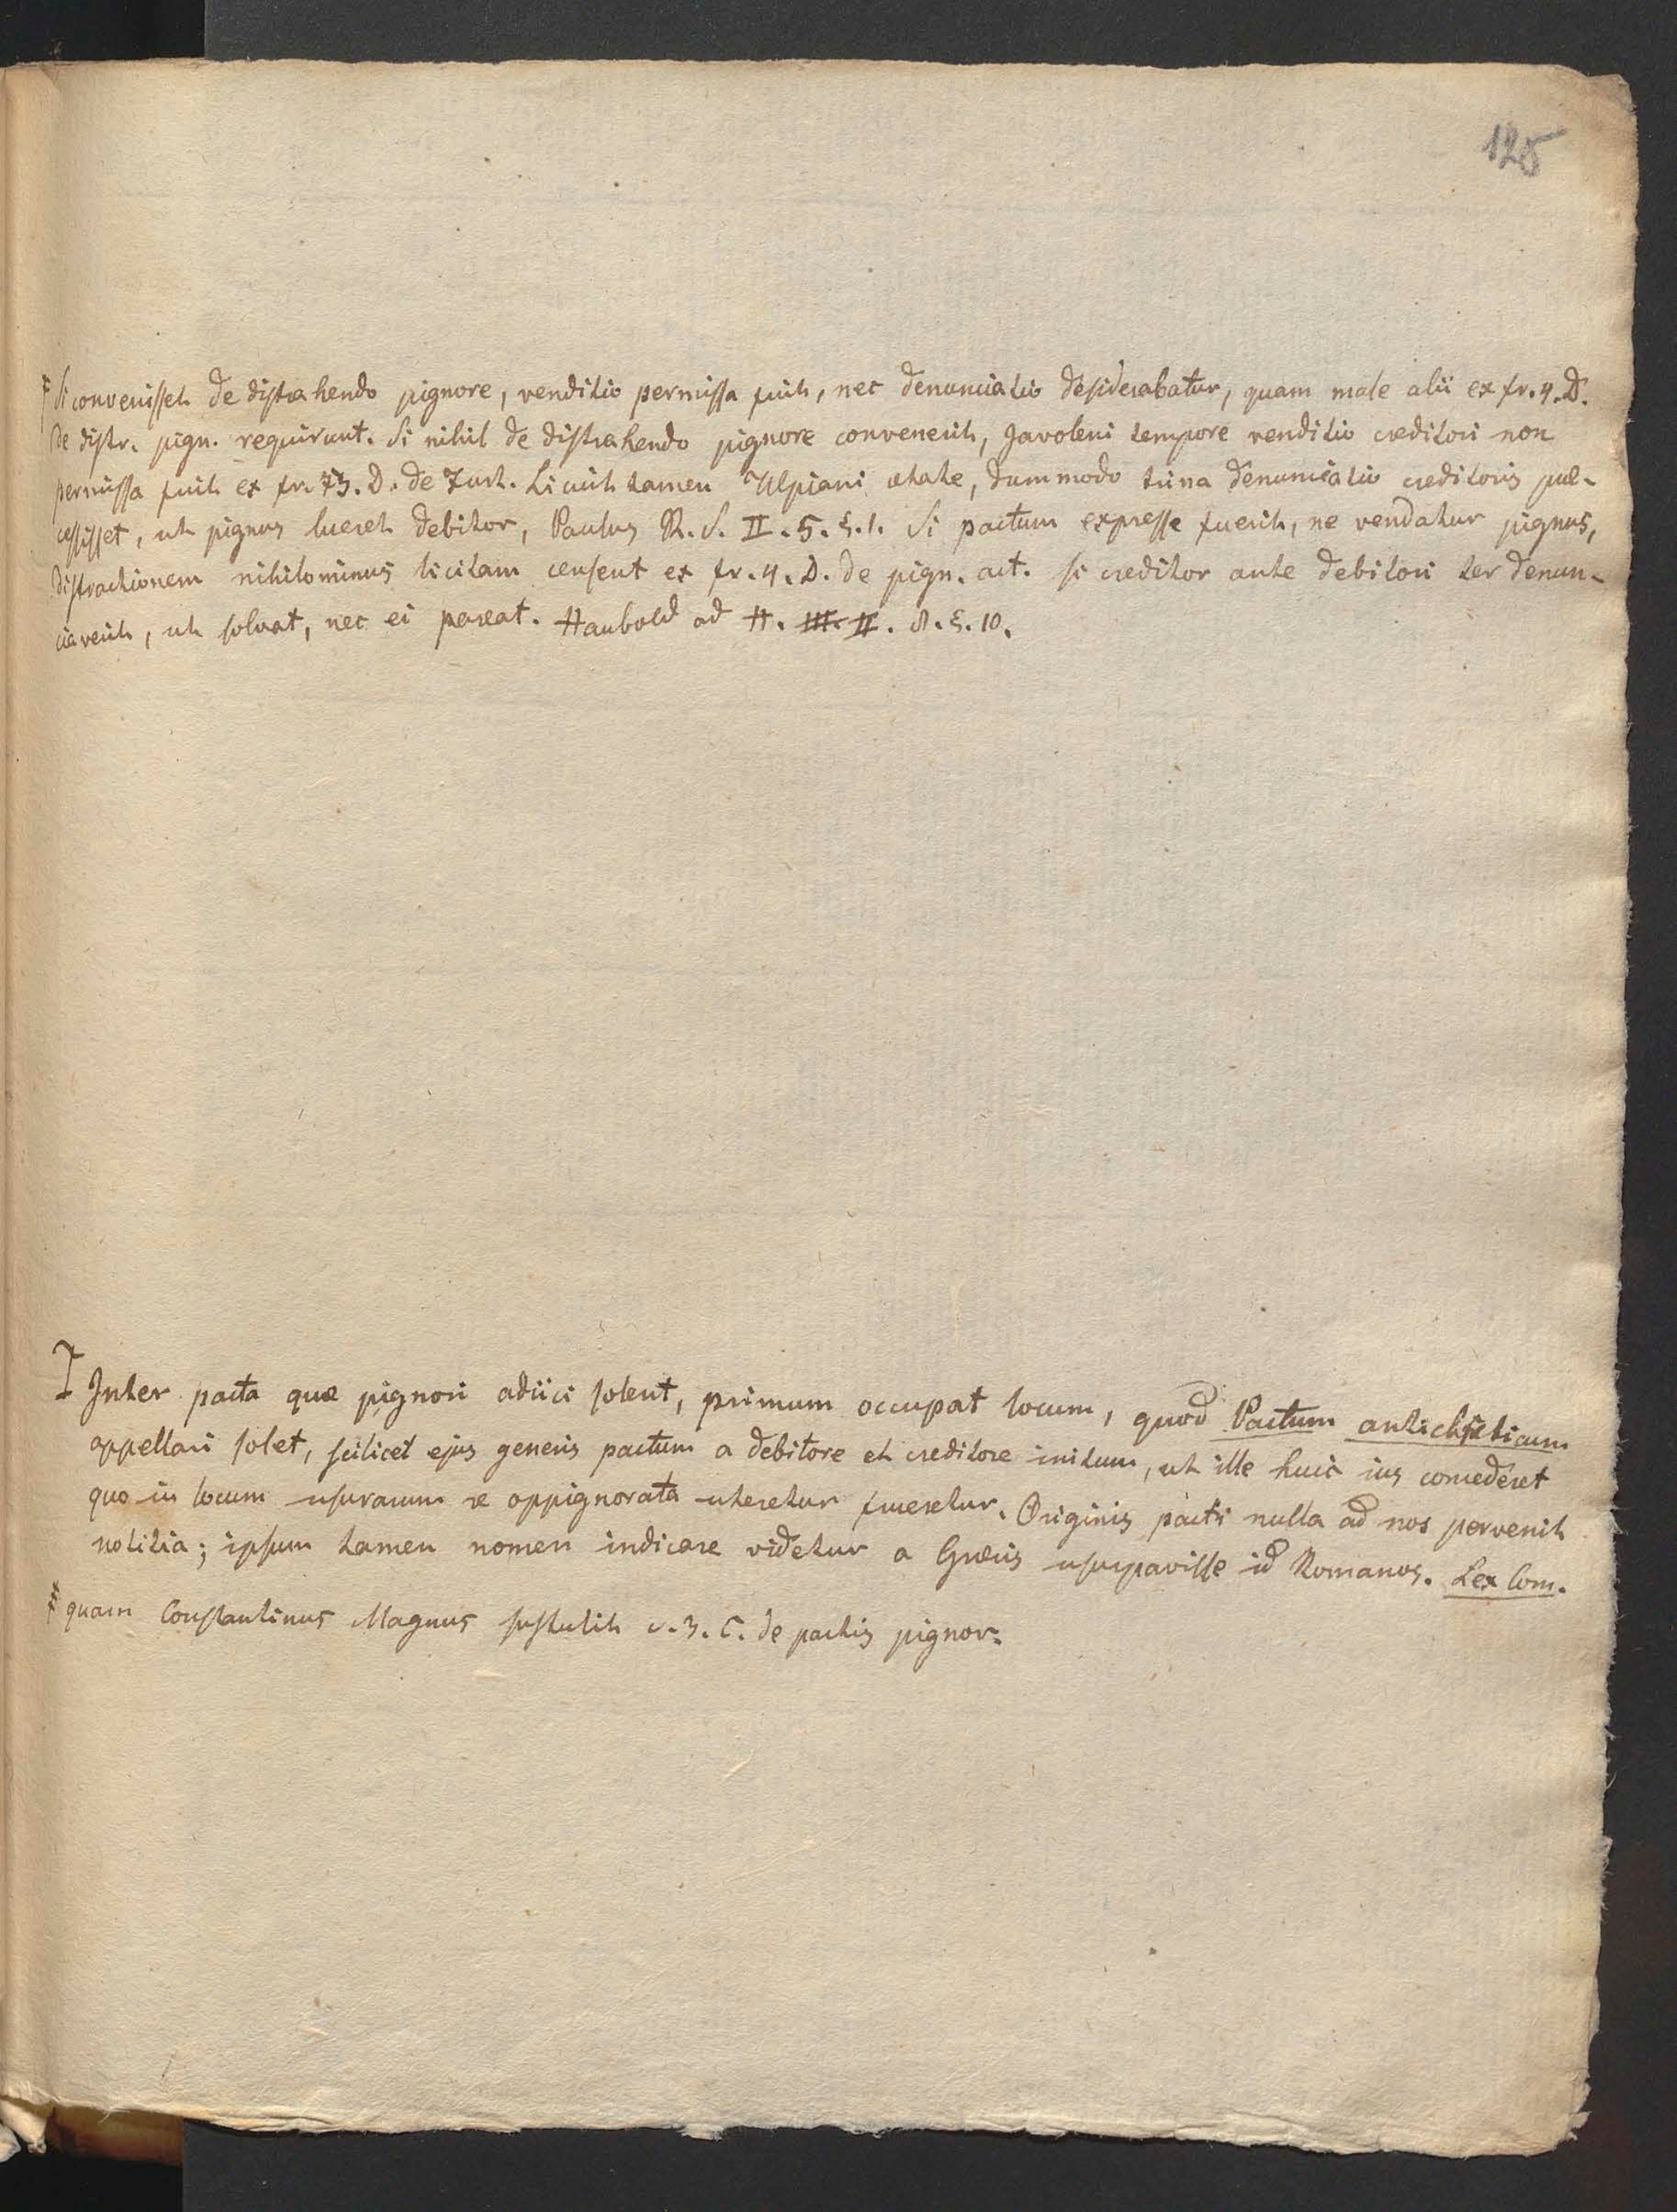 125
Si convenisset de distrahendo pignore, venditio permissa fuit, nec denunciatio desiderabatur, quam male alii ex fr. 4. D.
de distr. pign. requirunt. Si nihil de distrahendo pignore convenerit, Javoleni tempore venditio creditori non
permissa fuit ex fr. 73. D. de Furt. Licuit tamen Ulpiani ætate, dummodo trina denunciatio creditoris præ-
cessisset, ut pignus lueret debitor, Paulus R. S. II. 5. §. 1. Si pactum expresse fuerit, ne vendatur pignus,
distractionem nihilominus licitam censent ex fr. 4. D. de pign. act. si creditor ante debitori ter denun-
ciaverit, ut solvat, nec ei pareat. Haubold ad H. III. II. 8. §. 10.
Inter pacta quæ pignori adiici solent, primum occupat locum, quod Pactum antichreticum
appellari solet, scilicet ejus generis pactum a debitore et creditore initum, ut ille huic ius concederet
quo in locum usurarum re oppignorata uteretur frueretur. Originis pacti nulla ad nos pervenit
notitia; ipsum tamen nomen indicare videtur a Græcis usurpavisse id Romanos. Lex Com.
quam Constantinus Magnus sustulit c. 3. C. de pactis pignor.